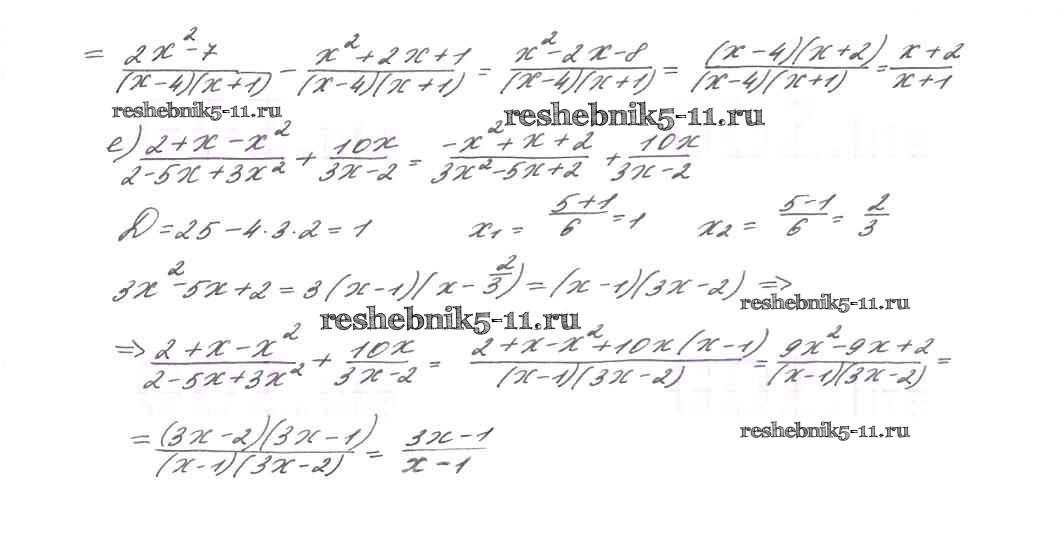 = (2x² - 7)/((x-4)(x+1)) - (x² + 2x + 1)/((x-4)(x+1)) = (x² - 2x - 8)/((x-4)(x+1)) = ((x-4)(x+2))/((x-4)(x+1)) = (x+2)/(x+1)
reshebnik5-11.ru reshebnik5-11.ru
е) (2+x-x²)/(2-5x+3x²) + 10x/(3x-2) = (-x²+x+2)/(3x²-5x+2) + 10x/(3x-2)
D = 25 - 4·3·2 = 1 x₁ = (5+1)/6 = 1 x₂ = (5-1)/6 = 2/3
3x² - 5x + 2 = 3(x-1)(x - 2/3) = (x-1)(3x-2) =>
reshebnik5-11.ru reshebnik5-11.ru
=> (2+x-x²)/(2-5x+3x²) + 10x/(3x-2) = (2+x-x²+10x(x-1))/((x-1)(3x-2)) = (9x²-9x+2)/((x-1)(3x-2)) =
= ((3x-2)(3x-1))/((x-1)(3x-2)) = (3x-1)/(x-1)
reshebnik5-11.ru